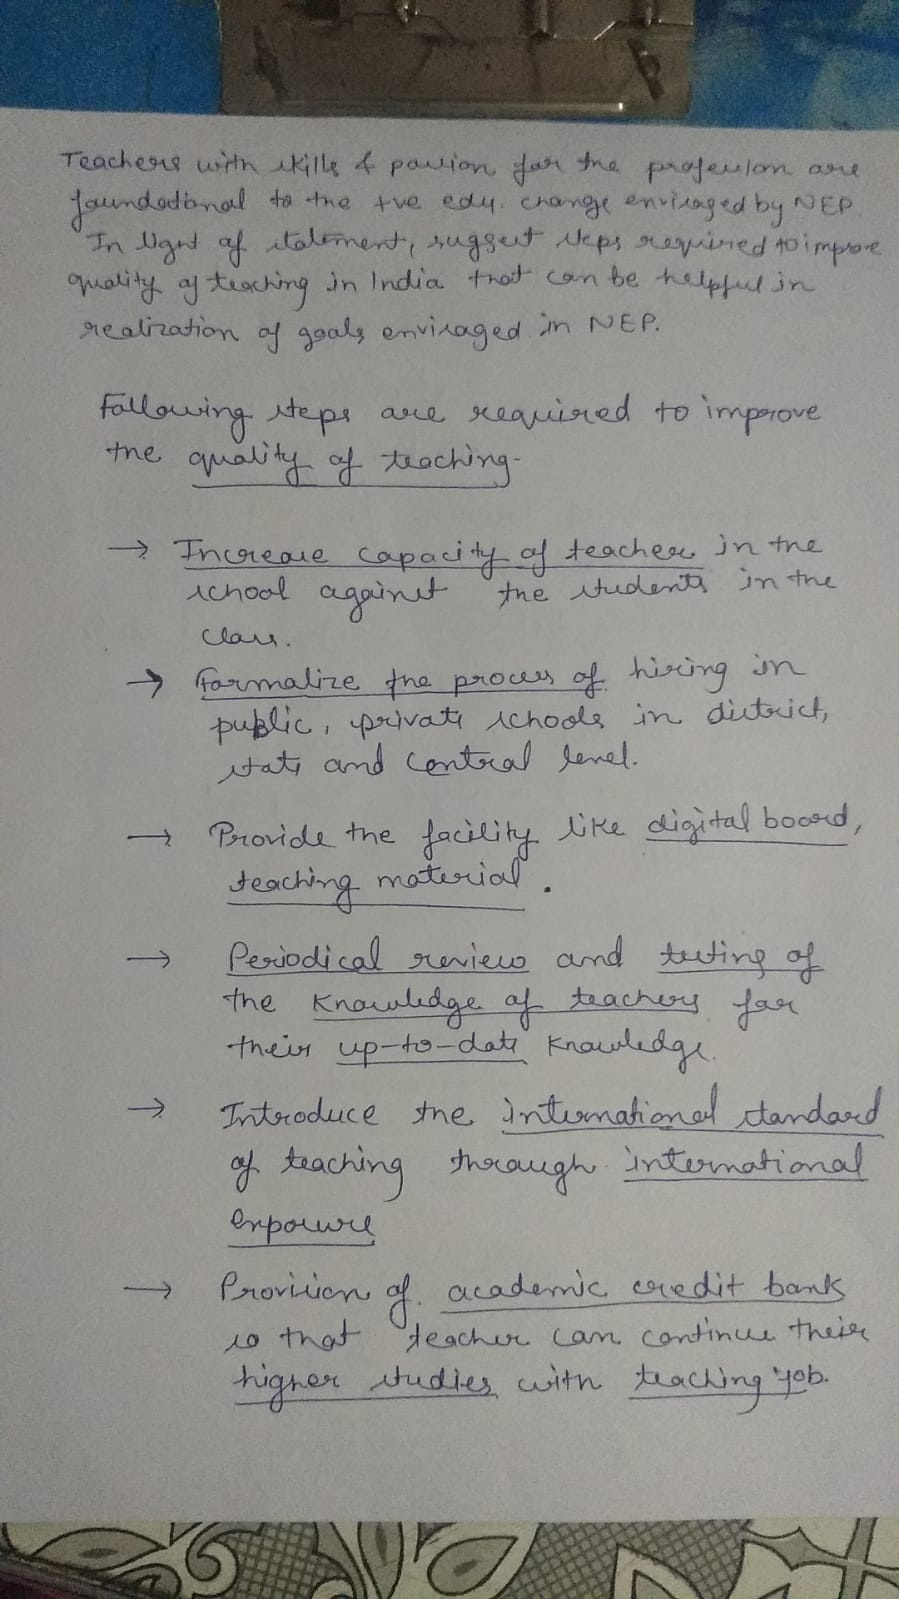 Teachers with skills & passion for the profession are
foundational to the +ve edu. change envisaged by NEP.
In light of statement, suggest steps required to improve
quality of teaching in India that can be helpful in
realization of goals envisaged in NEP.
Following steps are required to improve
the quality of teaching-
→ Increase capacity of teacher in the
school against the students in the
class.
→ Formalize the process of hiring in
public, private schools in district,
state and central level.
→ Provide the facility like digital board,
teaching material.
→ Periodical review and testing of
the knowledge of teachers for
their up-to-date knowledge.
→ Introduce the international standard
of teaching through international
exposure
→ Provision of academic credit bank
so that teacher can continue their
higher studies with teaching job.